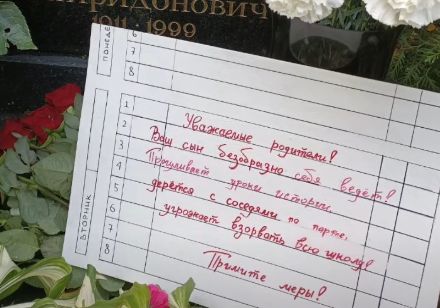 ИРИДОНОВИЧ
1911 - 1999
ПОНЕДЕ
6
7
8
ВТОРНИК
1
2
3
4
5
6
7
8
Уважаемые родители!
Ваш сын безобразно себя ведёт!
Прогуливает уроки истории,
дерётся с соседями по парте,
угрожает взорвать всю школу!
Примите меры!